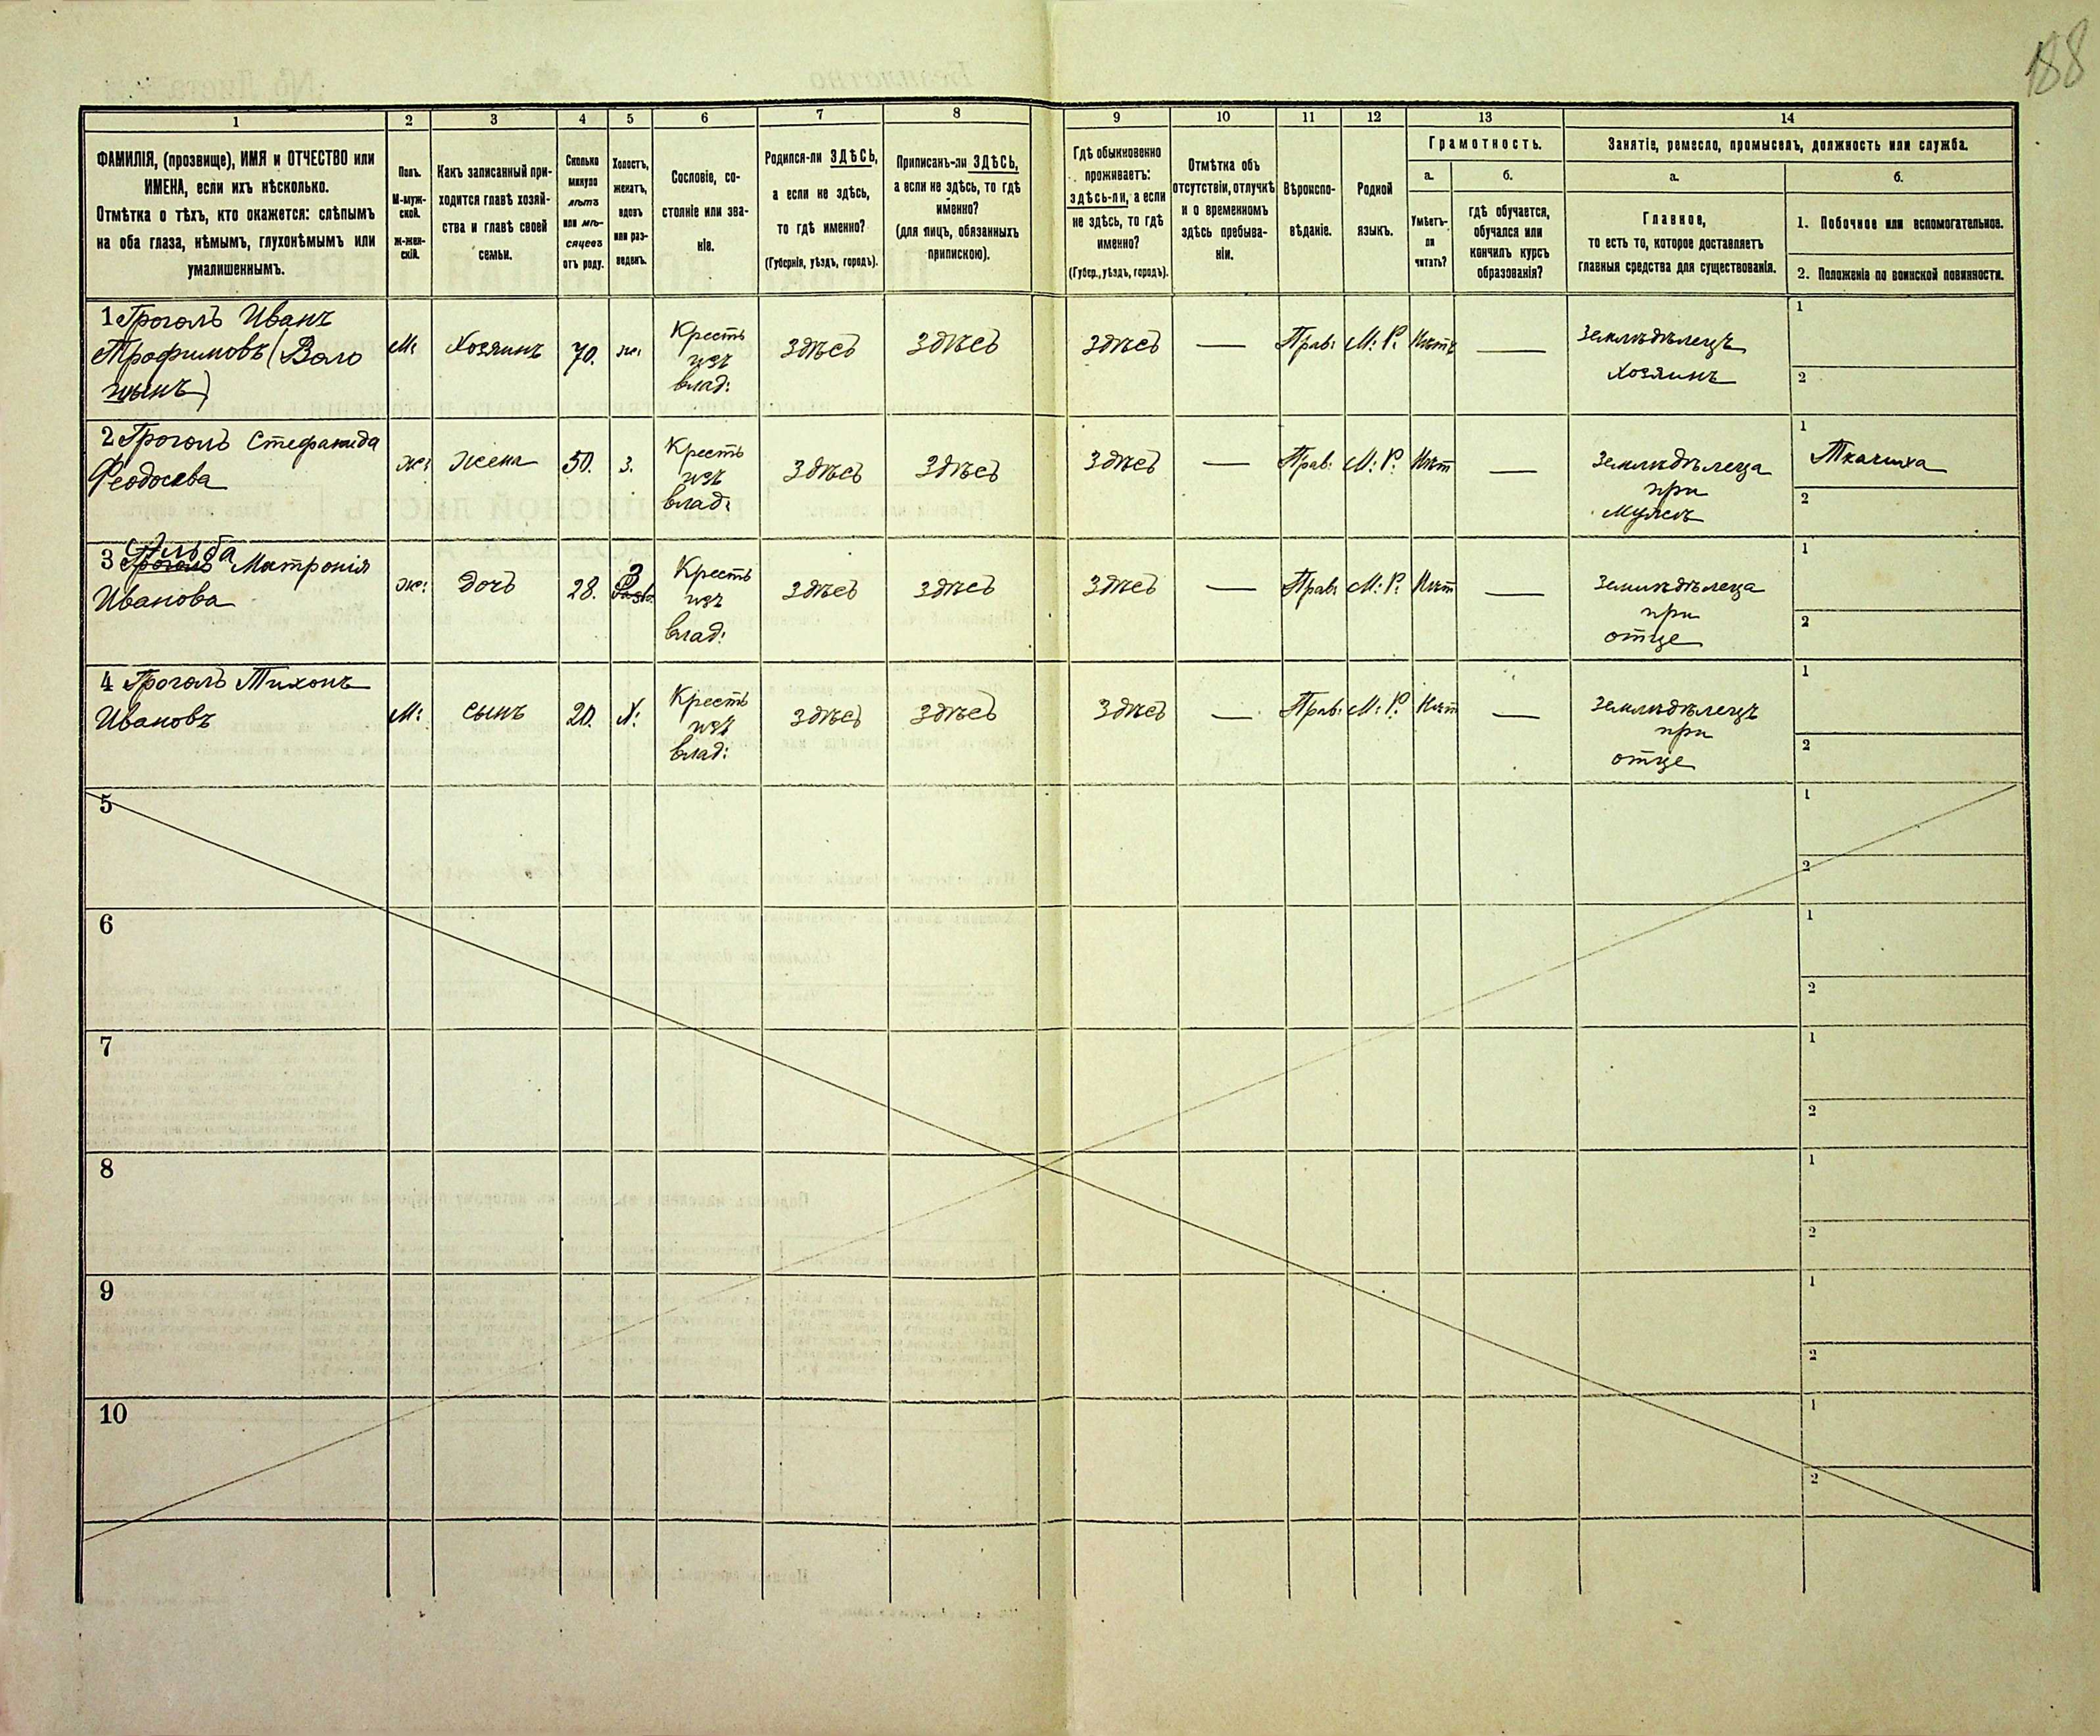 188
1
2
3
4
5
6
7
8
9
10
11
12
13
14
ФАМИЛІЯ, (прозвище), ИМЯ и ОТЧЕСТВО или
ИМЕНА, если ихъ нѣсколько.
Отмѣтка о тѣхъ, кто окажется: слѣпымъ
на оба глаза, нѣмымъ, глухонѣмымъ или
умалишеннымъ.
Полъ.
М-муж-
ской.
ж-жен-
скій.
Какъ записанный при-
ходится главѣ хозяй-
ства и главѣ своей
семьи.
Сколько
минуло
лѣтъ
или мѣ-
сяцевъ
отъ роду.
Холостъ,
женатъ,
вдовъ
или раз-
веденъ.
Сословіе, со-
стояніе или зва-
ніе.
Родился-ли ЗДѢСЬ,
а если не здѣсь,
то гдѣ именно?
(Губернія, уѣздъ, городъ).
Приписанъ-ли ЗДѢСЬ,
а если не здѣсь, то гдѣ
именно?
(для лицъ, обязанныхъ
припискою).
Гдѣ обыкновенно
проживаетъ:
здѣсь-ли, а если
не здѣсь, то гдѣ
именно?
(Губер., уѣздъ, городъ).
Отмѣтка объ
отсутствіи, отлучкѣ
и о временномъ
здѣсь пребыва-
ніи.
Вѣроиспо-
вѣданіе.
Родной
языкъ.
Грамотность.
а.
Умѣетъ-
ли
читать?
б.
гдѣ обучается,
обучался или
кончилъ курсъ
образованія?
Занятіе, ремесло, промыселъ, должность или служба.
а.
Главное,
то есть то, которое доставляетъ
главныя средства для существованія.
б.
1. Побочное или вспомогательное.
2. Положеніе по воинской повинности.
1 Гроголъ Иванъ
Трофимовъ (Воло
шынъ)
М:
Хозяинъ
70.
ж:
Кресть
изъ
влад:
Здѣсь
Здѣсь
Здѣсь
—
Прав:
М: Р:
Нѣтъ
—
Землѣдѣлецъ
Хозяинъ
1
2
2 Гроголъ Стефанида
Феодосѣва
ж:
Жена
50.
з.
Кресть
изъ
влад:
Здѣсь
Здѣсь
Здѣсь
—
Прав:
М: Р:
Нѣт
—
Землѣдѣлеца
при
Мужѣ
1
Ткачиха
2
3 Гроголъ Матронія
Иванова
ж:
Дочь
28.
З
Кресть
изъ
влад:
Здѣсь
Здѣсь
Здѣсь
—
Прав:
М: Р:
Нѣт
—
Землѣдѣлеца
при
отце
1
2
4 Гроголъ Тихонъ
Ивановъ
М:
сынъ
20.
Х:
Кресть
изъ
влад:
Здѣсь
Здѣсь
Здѣсь
—
Прав:
М: Р:
Нѣт
—
Землѣдѣлецъ
при
отце
1
2
5
1
2
6
1
2
7
1
2
8
1
2
9
1
2
10
1
2